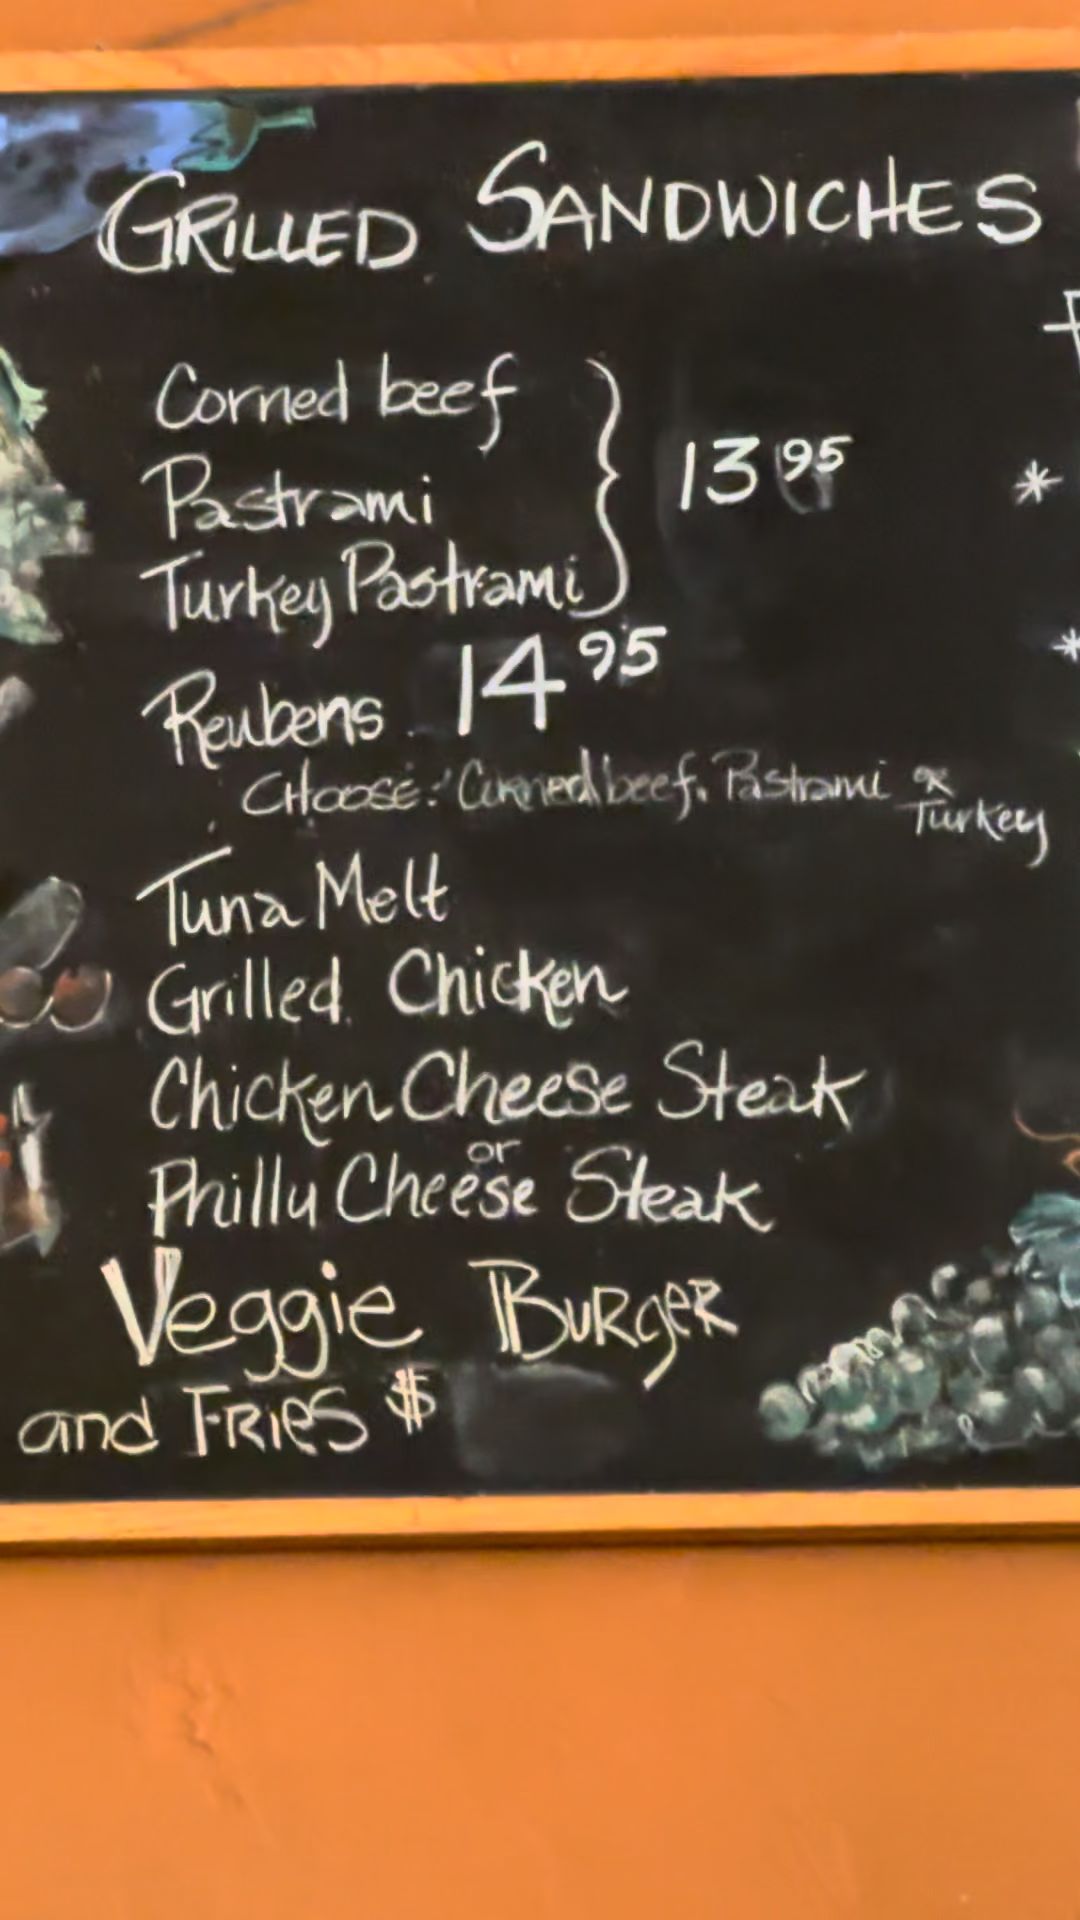 GRILLED SANDWICHES
Corned beef
Pastrami
Turkey Pastrami
13 95
Reubens 14 95
CHOOSE: Corned beef, Pastrami or
Turkey
Tuna Melt
Grilled Chicken
Chicken Cheese Steak
or
Philly Cheese Steak
Veggie BURGER
and FRIES $